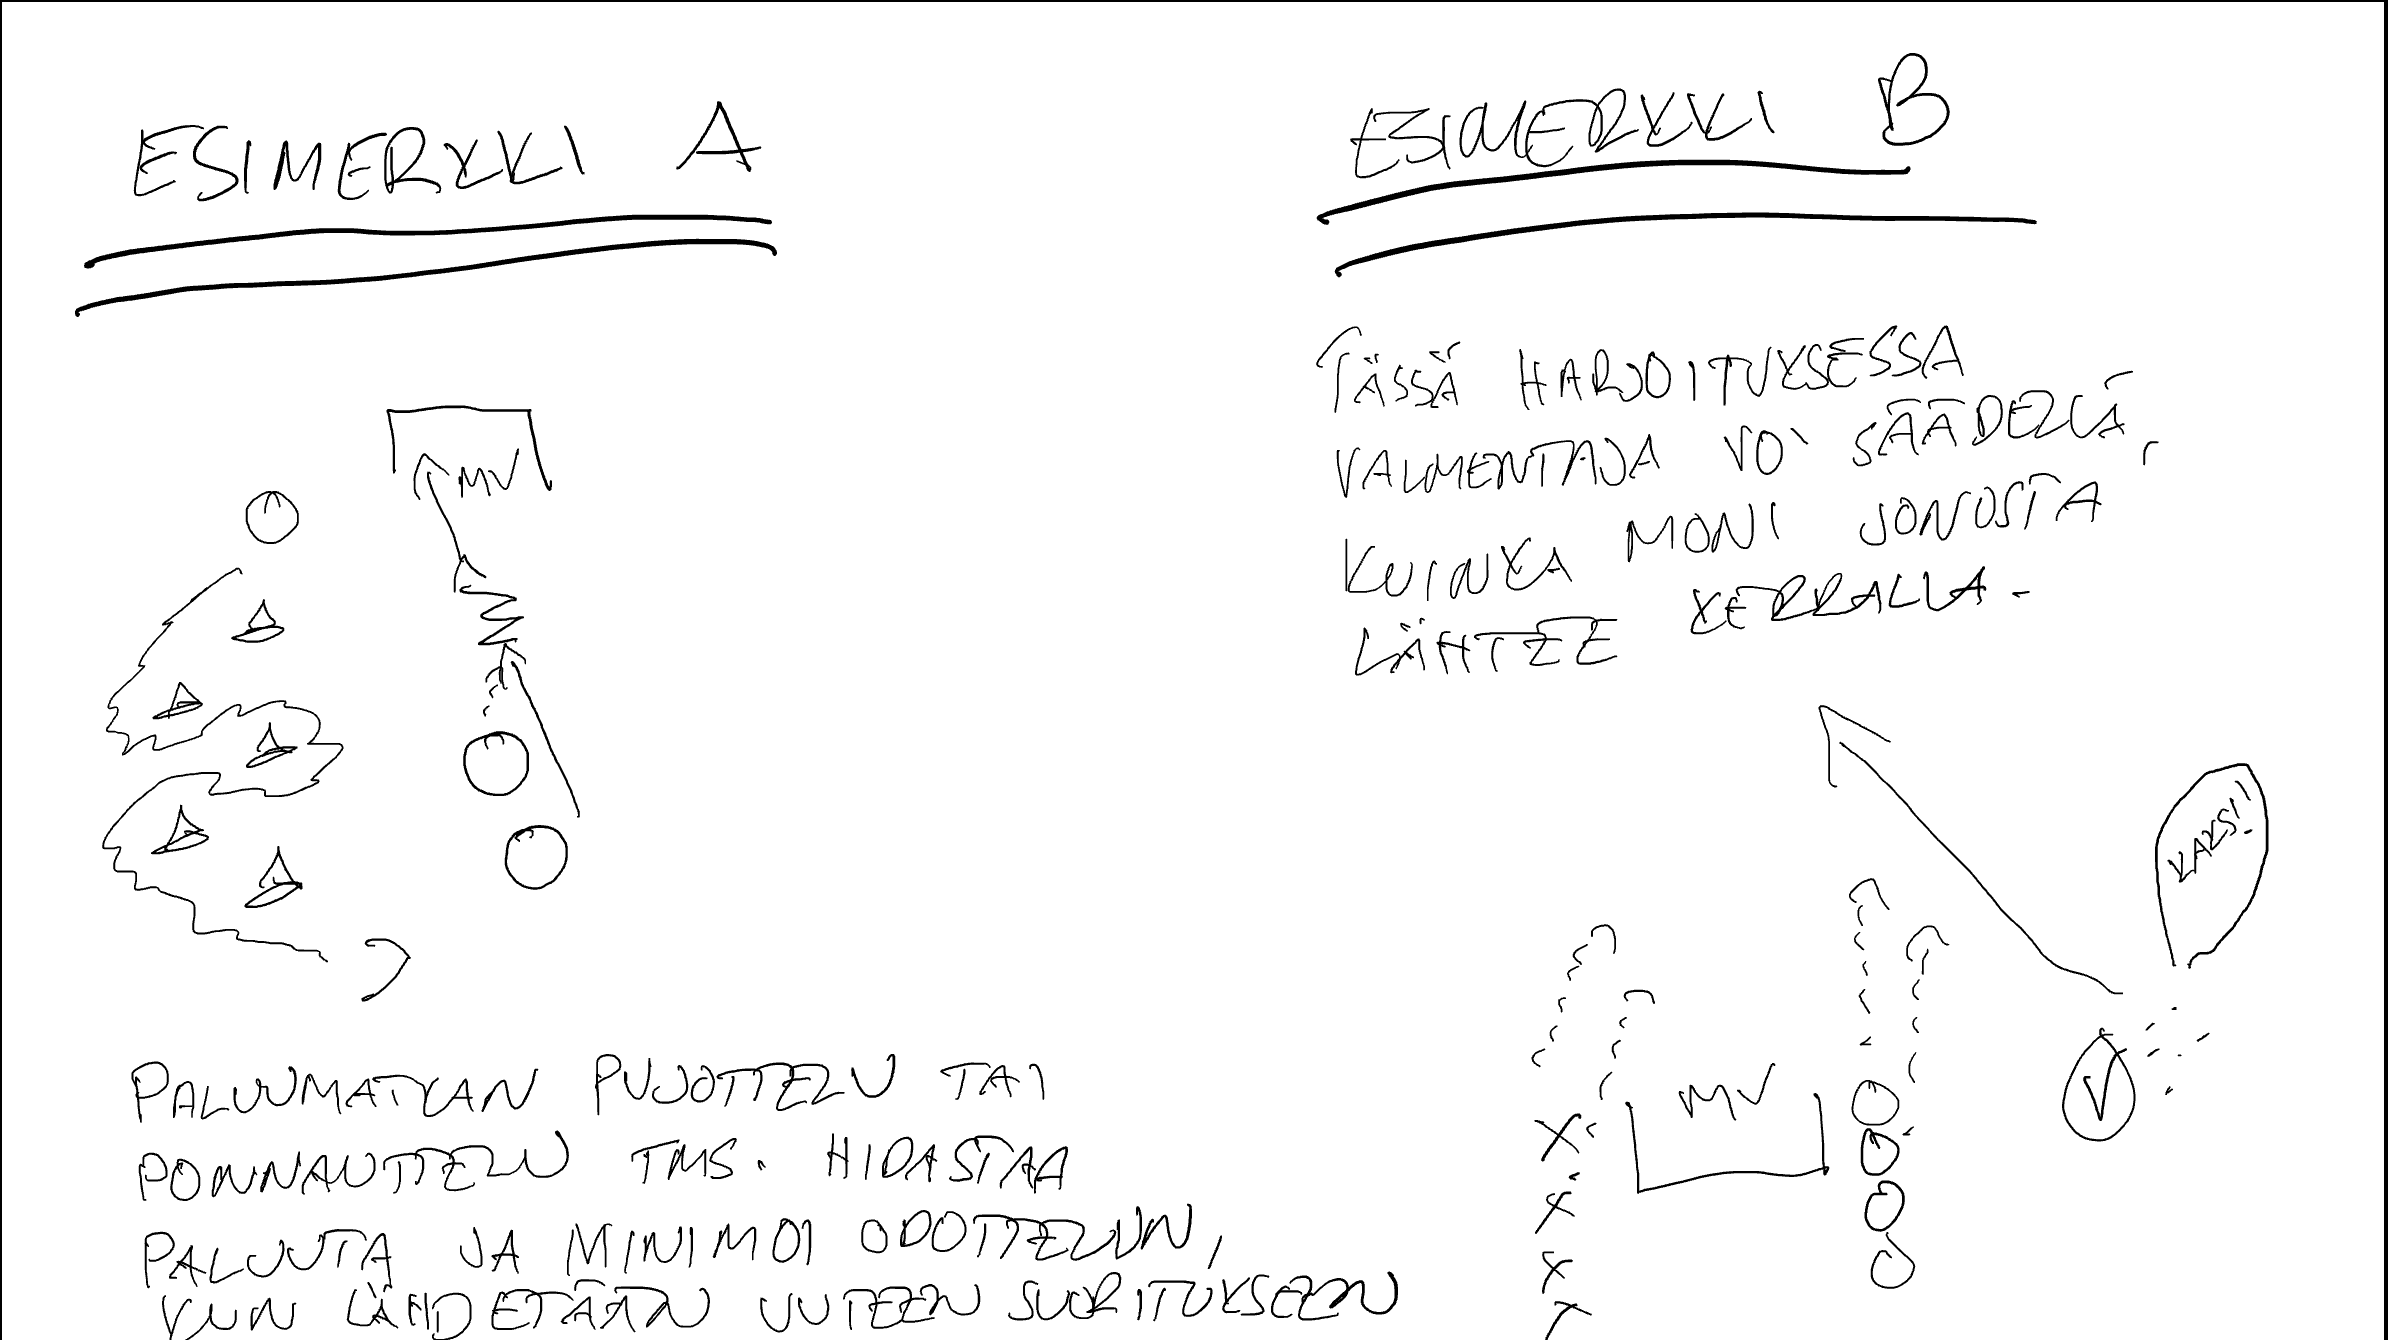 ESIMERKKI A
MV
PALUUMATKAN PUJOTTELU TAI
POMNAUTTELU TMS. HIDASTAA
PALUUTA JA MINIMOI ODOTTELUN,
KUN LÄHDETÄÄN UUTEEN SUORITUKSEEN
ESIMERKKI B
TÄSSÄ HARJOITUKSESSA
VALMENTAJA VOI SÄÄDELLÄ,
KUINKA MONI JONOSTA
LÄHTEE KERRALLA.
KAKSI!
V
MV
X
X
X
X